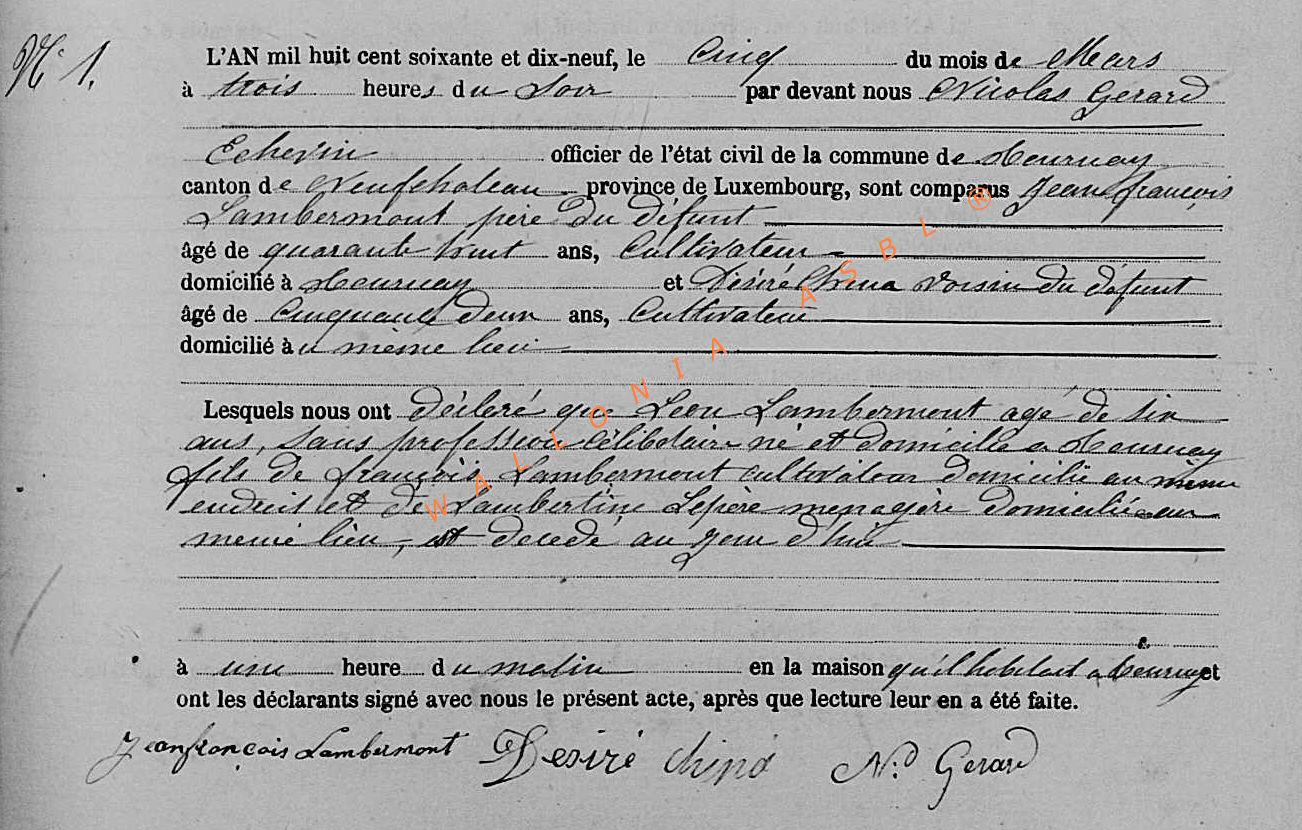 N° 1.
L'AN mil huit cent soixante et dix-neuf, le Cinq du mois de Mars
à trois heures du Soir par devant nous Nicolas Gerard
Echevin officier de l'état civil de la commune de
canton de Neufchateau province de Luxembourg, sont comparus Jean françois
Lambermont père du défunt
âgé de quarante huit ans, Cultivateur
domicilié à et Désiré China voisin du défunt
âgé de Cinquante deux ans, Cultivateur
domicilié au même lieu
Lesquels nous ont déclaré que Léon Lambermont agé de six
ans, sans profession célibataire né et domicilié a
fils de françois Lambermont cultivateur domicilié au même
endroit et de Lambertine Lepère menagère domiciliée au
meme lieu, est décedé au jour d'hui
à une heure du matin en la maison qu'il habitait a et
ont les déclarants signé avec nous le présent acte, après que lecture leur en a été faite.
Jeanfrançois Lambermont Desiré China Nd Gerard
WALLONIA ASBL ®